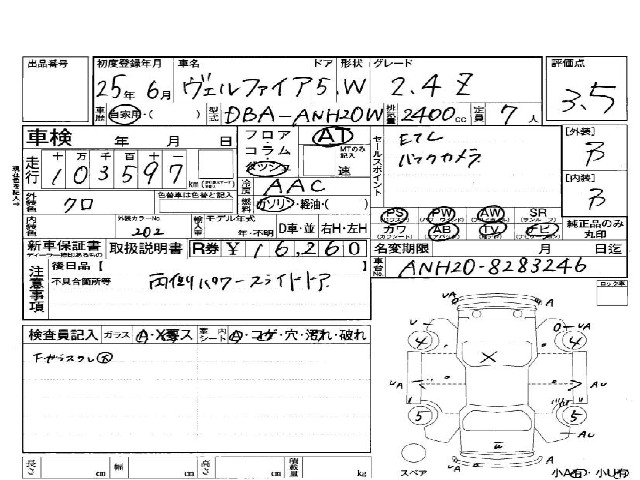 出品番号 初度登録年月 車名 ドア 形状 グレード 評価点
25年 6月 ヴェルファイア 5.W 2.4 Z 3.5
車歴 自家用・( ) 型式 DBA-ANH20W 排気量 2400cc 定員 7人
車検 年 月 日 フロア・コラム・ AT MTのみ記入 速
走行 十万千百十一 103597 km
冷房 AAC
セールスポイント ETC
バックカメラ
[外装] B
[内装] B
外装色 クロ 色替車は色替と記入 燃料 ガソリン・軽油・( )
PS PW AW SR
カワ AB TV ナビ 純正品のみ丸印
内装色 外装カラーNo 202 輸入車 モデル年式 年・不明 D車・並 右H・左H
新車保証書 取扱説明書 R券 ¥16,260 名変期限 月 日迄
注意事項 後日品[ ] 車台No. ANH20-8283246
不具合箇所等 両側パワースライドドア
ロック車
検査員記入 ガラス A・X 車内シート ・コゲ・穴・汚れ・破れ
U UA A O-UA
4 4
X
UA A AU
5 5
AU
スペア UA 小A 小U
長さ cm 幅 cm 高さ cm 積載量 kg